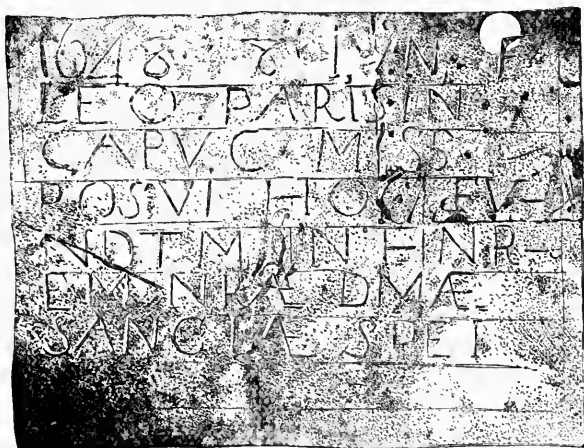 1648 8 IVN. F
LEO. PARISIN.
CAPVC. MISS.
POSVI HOC FV-
NDTM IN HNR-
EM NRÆ DMÆ
SANCTÆ SPEI